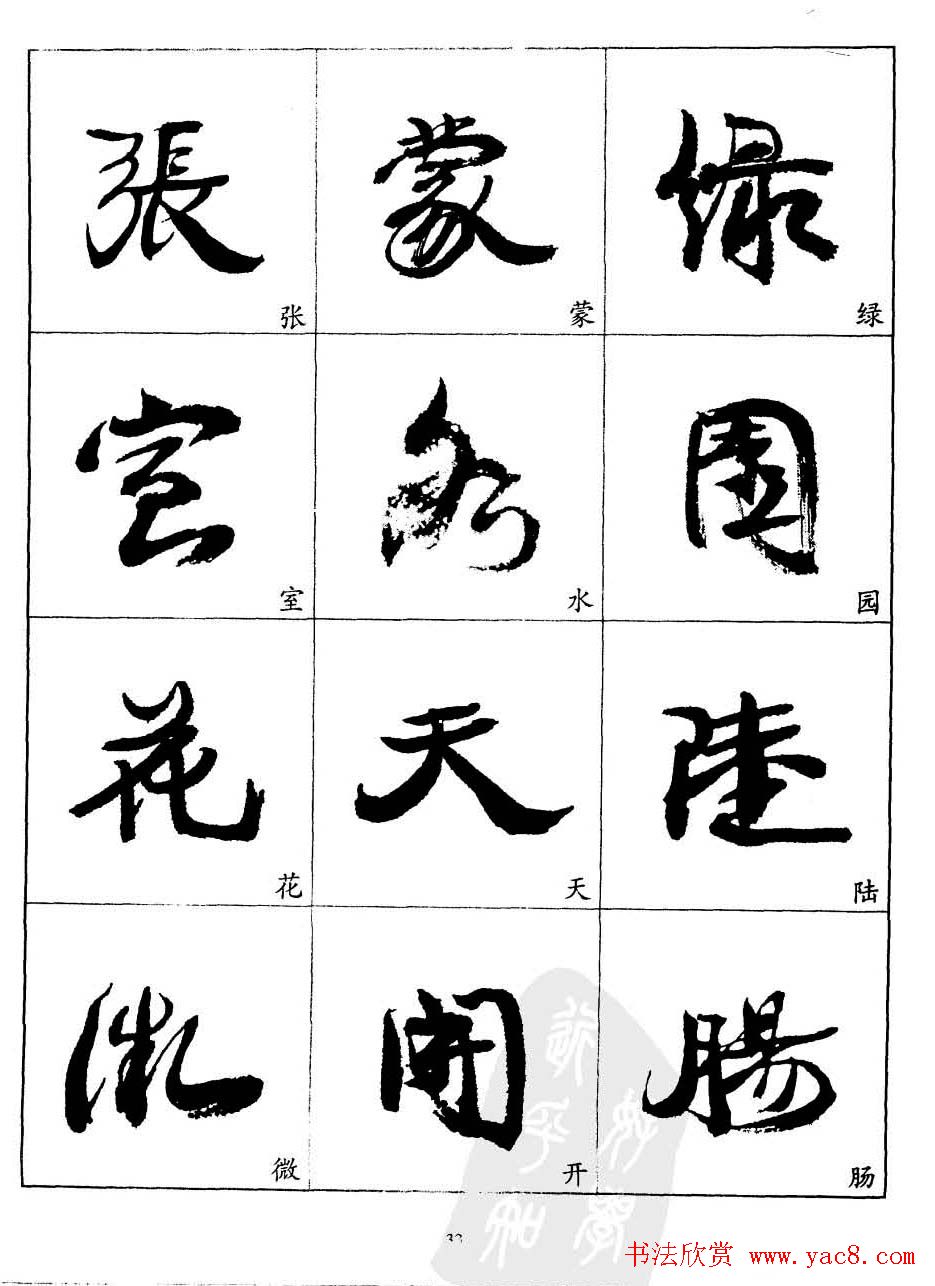 張 蒙 绿
张 蒙 绿
室 水 園
室 水 园
花 天 陸
花 天 陆
微 開 腸
微 开 肠
书法欣赏 www.yac8.com